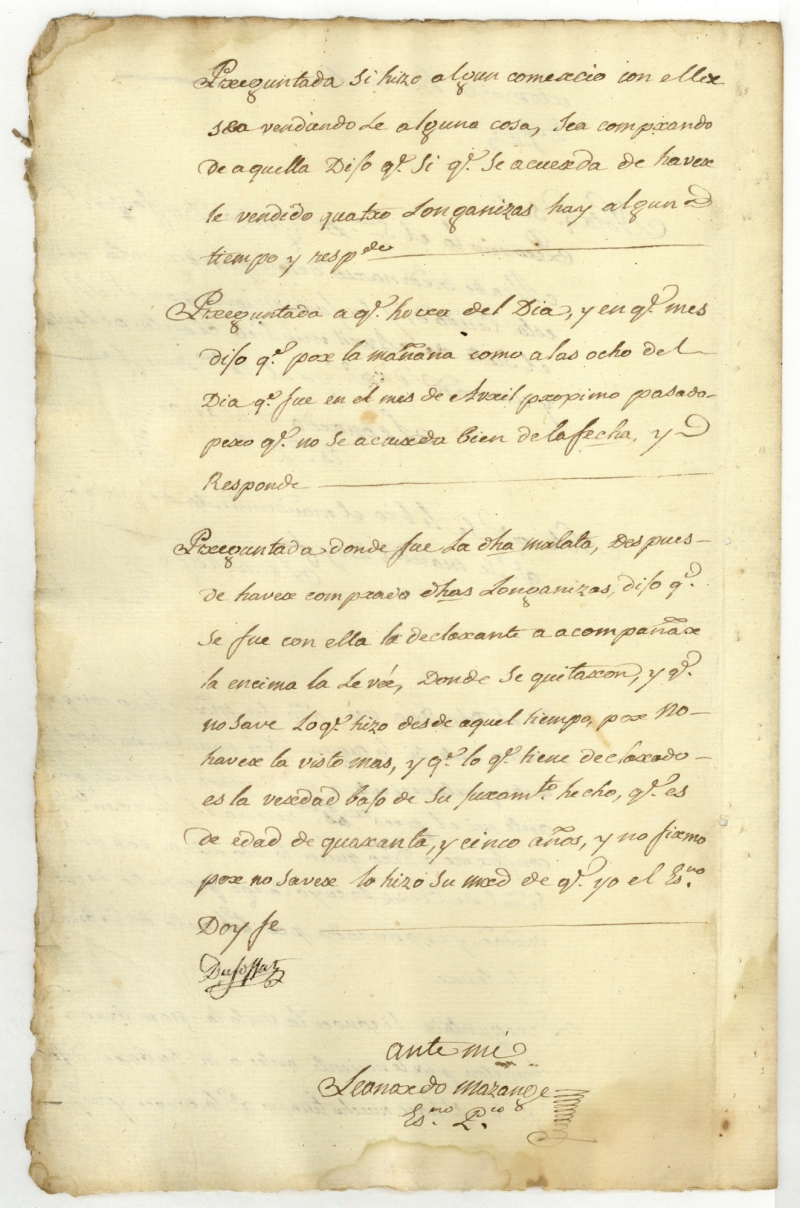 Preguntada si hizo algun comercio con ella
sea vendiendole alguna cosa, sea comprando
de aquella Dijo qe. si qe. se acuerda de haver
le vendido quatro Longanizas hay algun
tiempo y respde
Preguntada a qe. hora del Dia, y en qe. mes
dijo qe. por la mañana como a las ocho del
Dia qe. fue en el mes de Avril proximo pasado
pero qe. no se acuerda bien de la fecha, y
Responde
Preguntada donde fue la dha mulata, despues
de haver comprado dhas Longanizas, dijo qe.
se fue con ella la declarante a acompañar
la encima la Levée, Donde se quitaron, y qe.
no save lo qe. hizo desde aquel tiempo, por no
haver la visto mas, y qe. lo qe. tiene declarado
es la verdad bajo de su juramto. hecho, qe. es
de edad de quarenta, y cinco años, y no firmo
por no saver lo hizo su mrd de qe. yo el Esno.
Doy fe
Dufossat
ante mi
Leonardo Mazange
Esno. Pco.